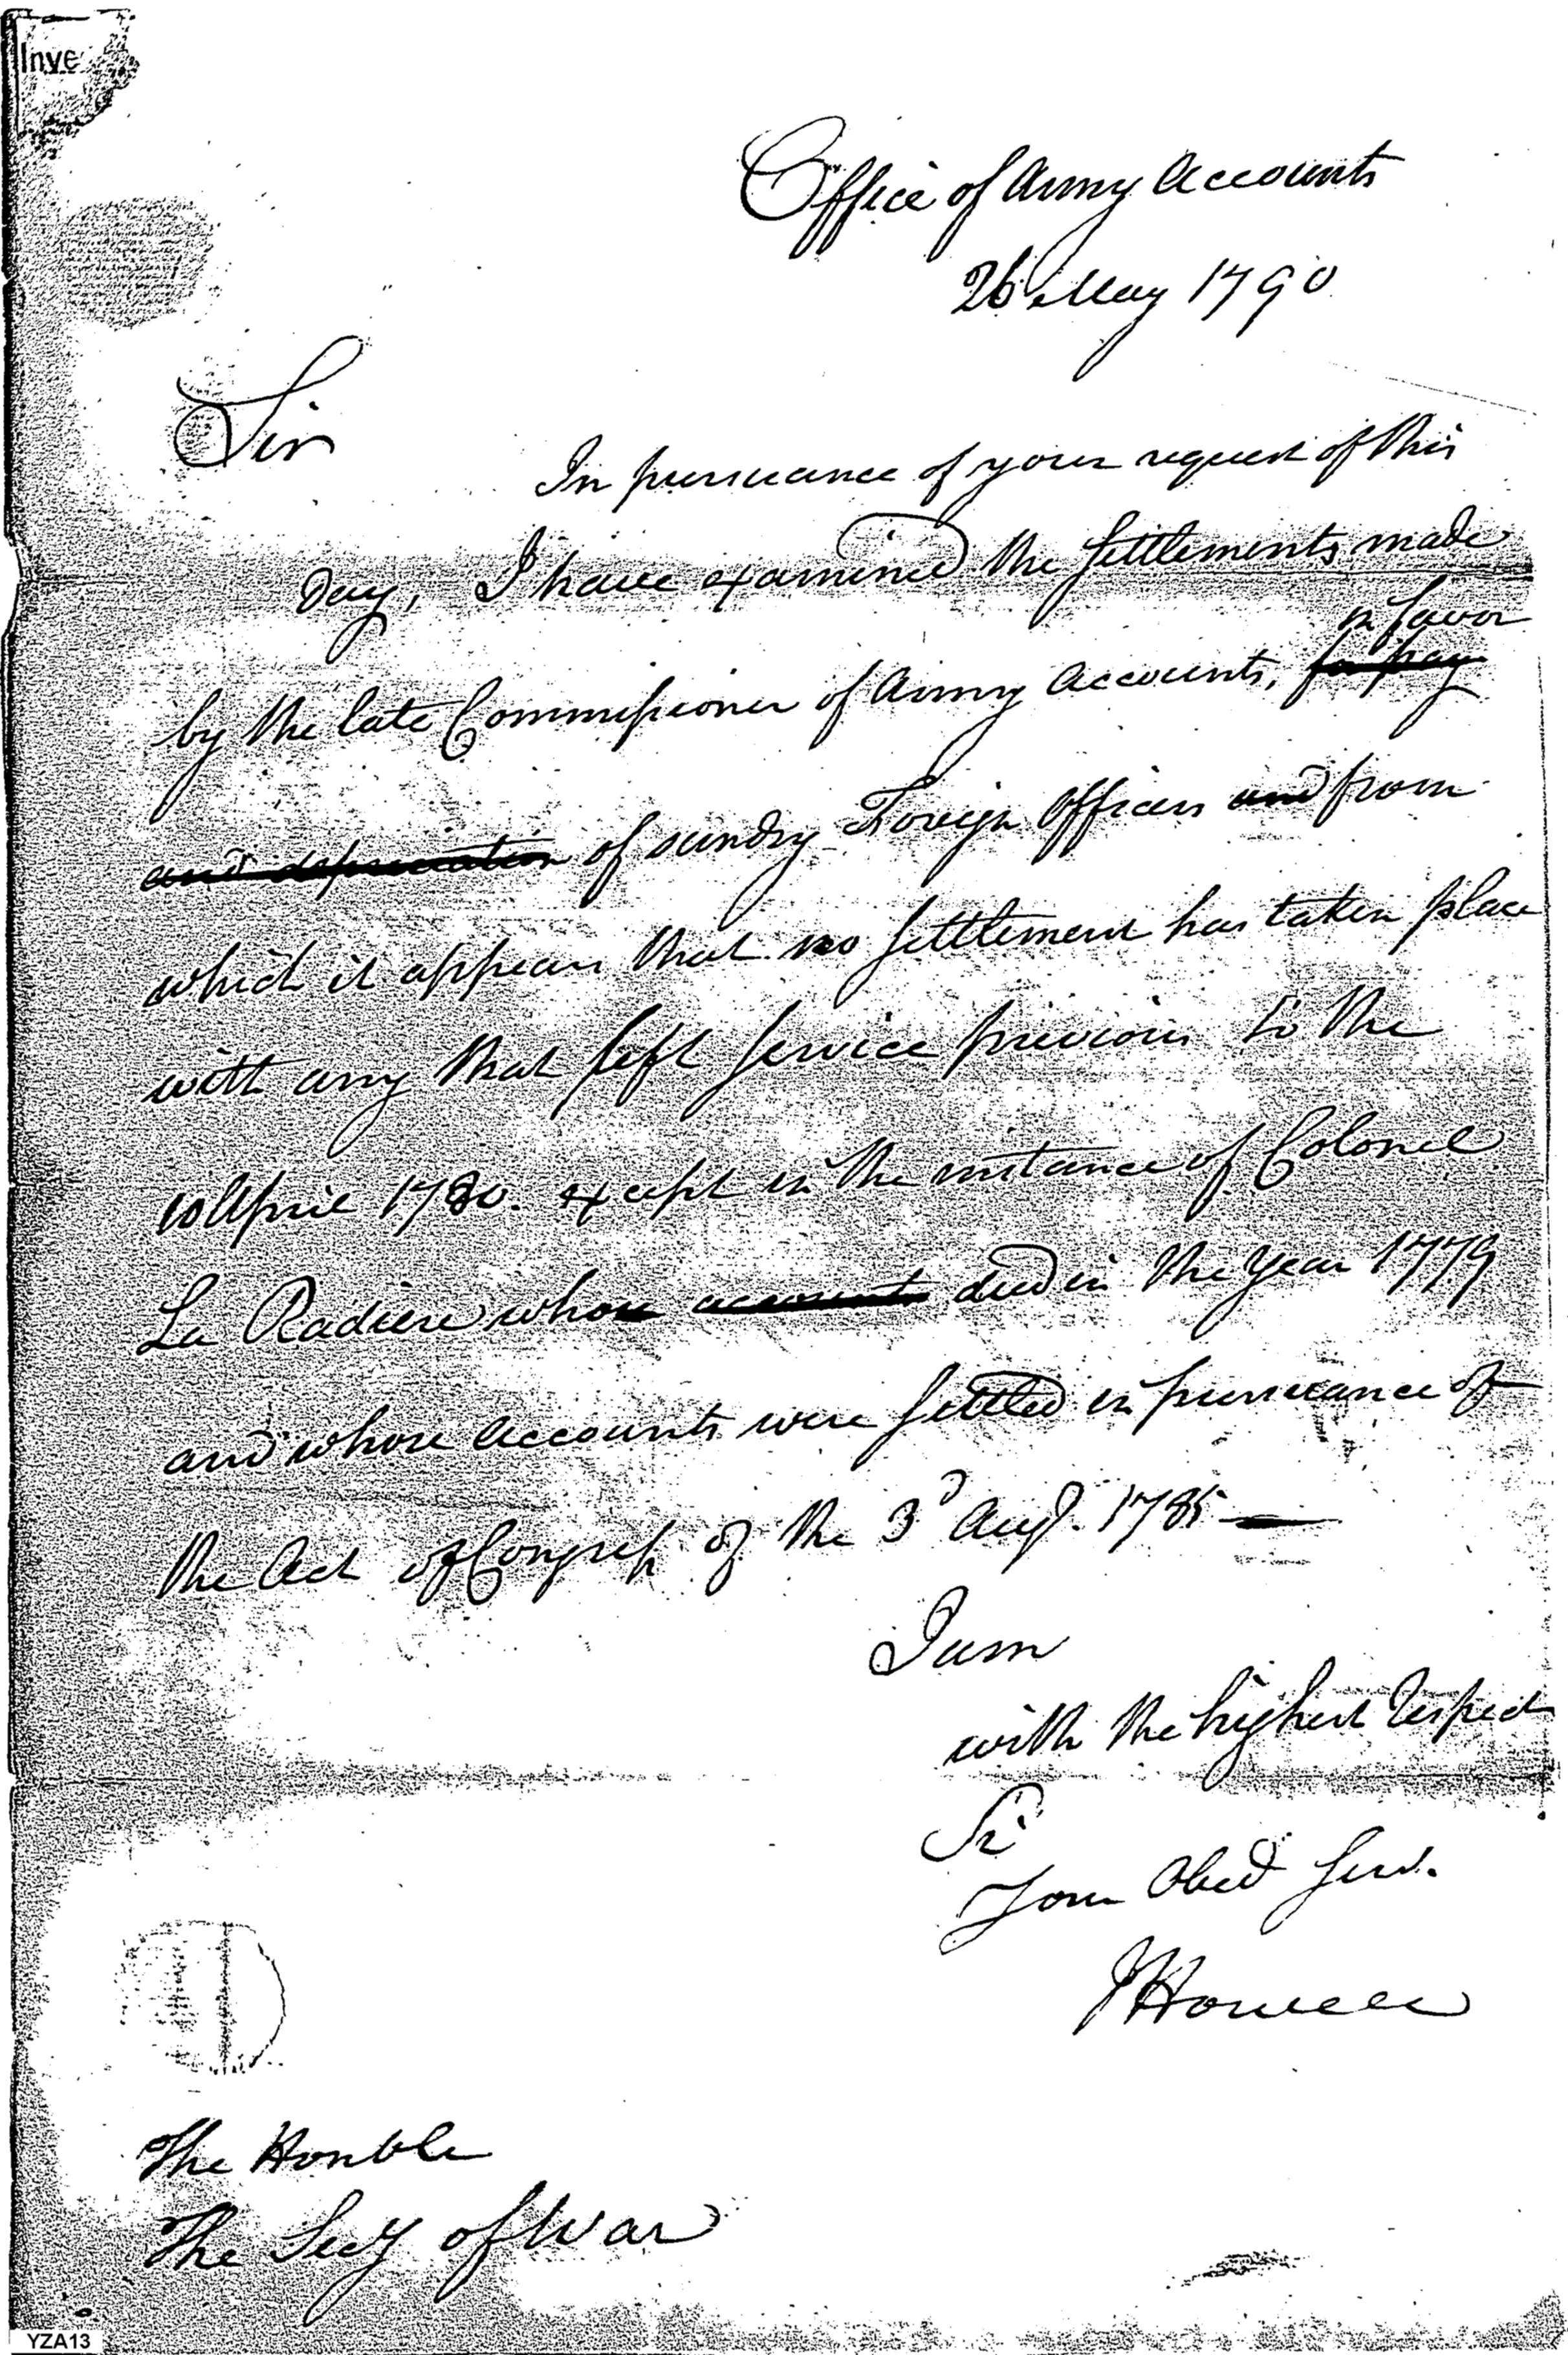 Inve
Office of Army Accounts
26 May 1790
Sir
In pursuance of your request of this
day, I have examined the settlements made
in favor
by the late Commissioner of Army Accounts, for pay
and depreciation of sundry Foreign Officers and from
which it appears that no settlement has taken place
with any that left service previous to the
10 April 1780. except in the instance of Colonel
La Radiere whose accounts died in the year 1779
and whose Accounts were settled in pursuance of
the Act of Congress of the 3d Augt. 1785 —
I am
with the highest respect
Sir
Your Obed Servt.
J Howell
The Honble
The Secy of War
YZA13